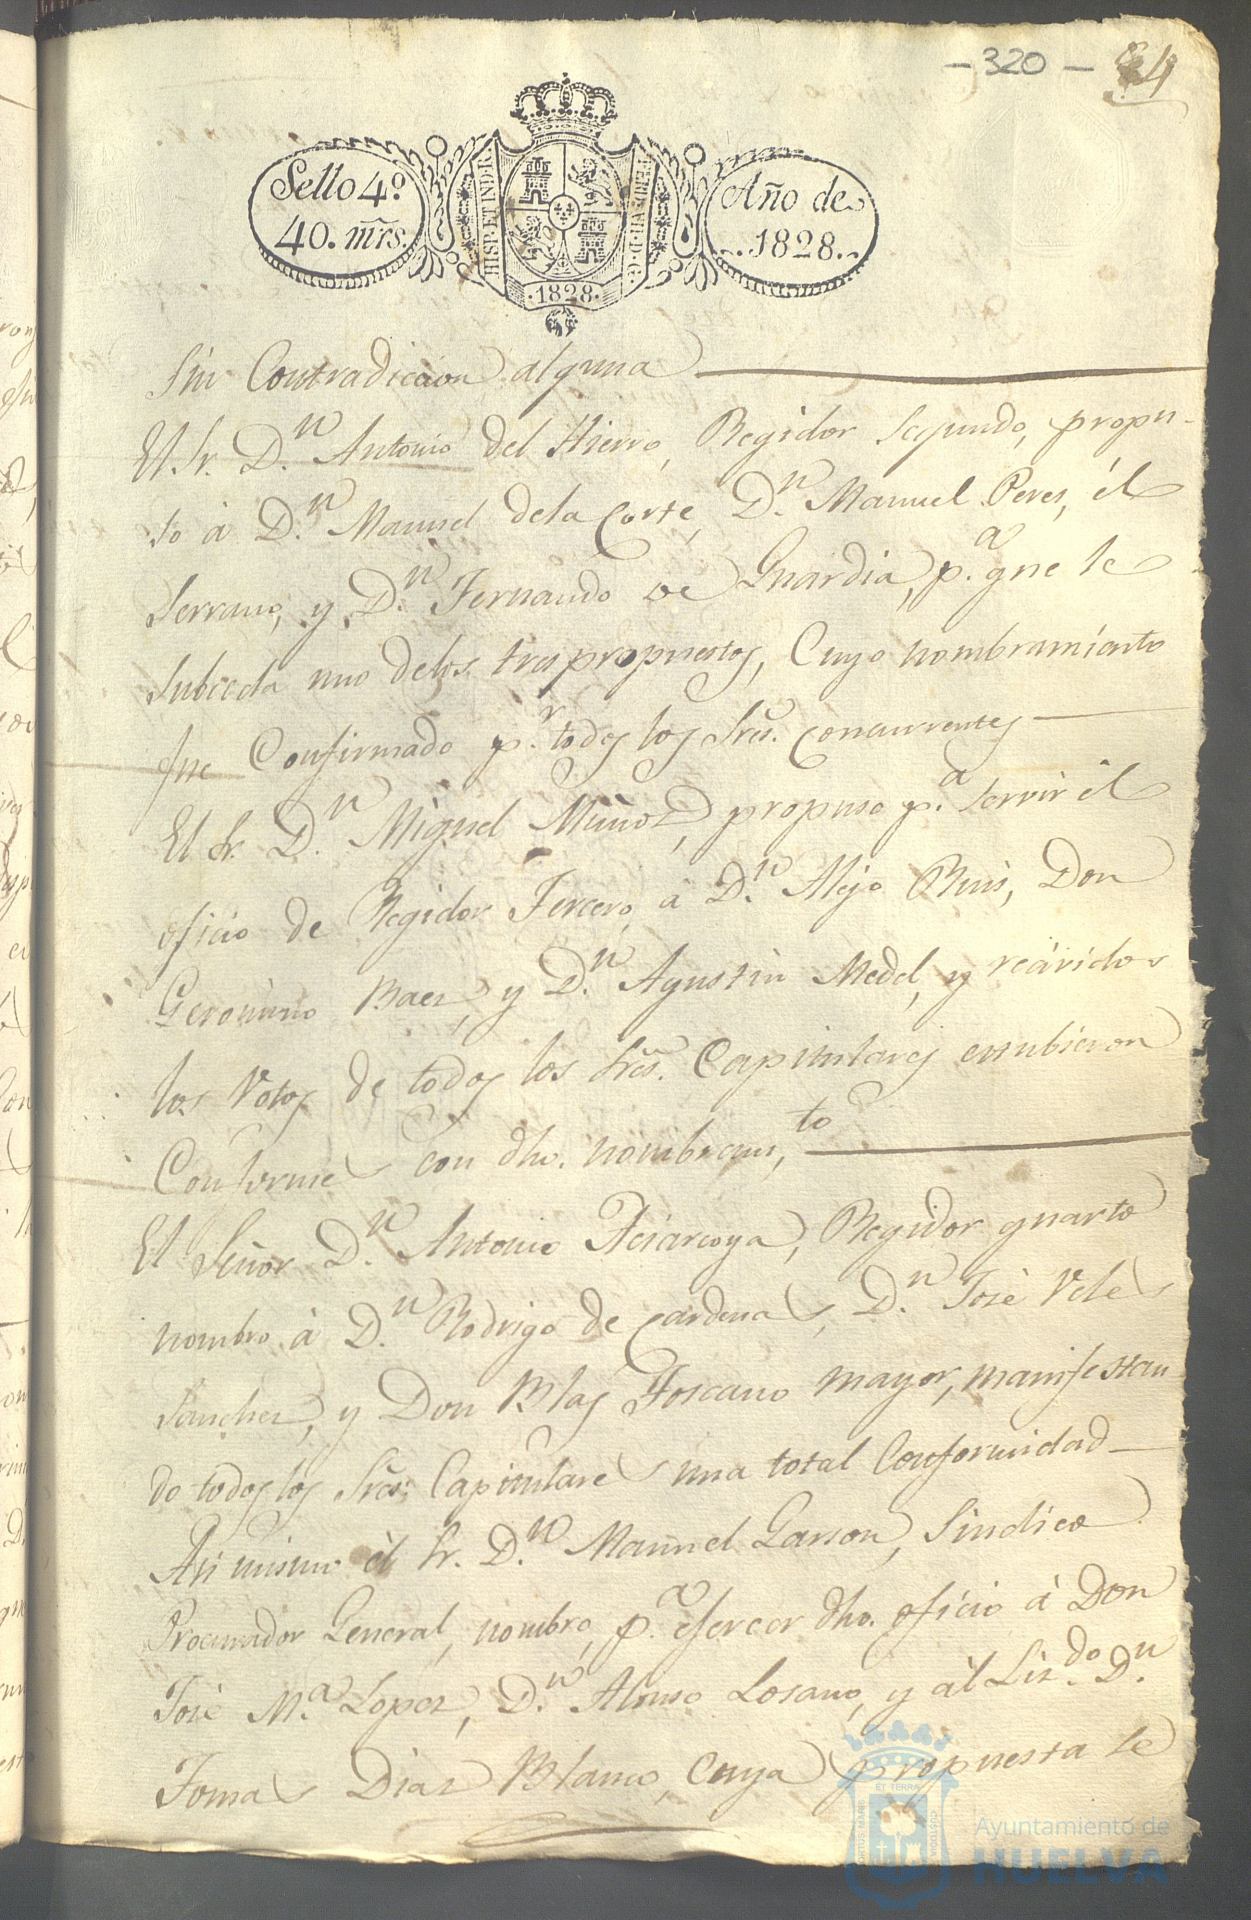 - 320 - 84
Sello 4º
40. mrs.
HISP. ET IND. R.
FERD. VII. D. G.
·1828·
Año de
1828.
Sin Contradiccion alguna
El Sr. D.n Antonio del Hierro, Regidor Segundo, propu-
so à D.n Manuel dela Corte, D.n Manuel Peres, él
Serrano, y D.n Fernando de Guardia, p.a que le
Subceda uno delos tres propuestos, Cuyo nombramiento
fue Confirmado p.r todos los Sres. Concurrentes
El Sr. D.n Miguel Muñoz, propuso p.a servir él
oficio de Regidor Tercero, à D.n Alejo Ruis, Don
Geronimo Baez, y D.n Agustin Medel, y recividos
los Votos de todos los Sres. Capitulares estubieron
Conforme con dho. nombram.to
El Señor D.n Antonio Regidor quarto
nombro à D.n Rodrigo de Cardenas, D.n José Veles
Sanchez, y Don Blas Toscano mayor, manifestan
do todos los Sres. Capitulares una total Conformidad
Asi mismo él Sr. D.n Manuel Garson, Sindico
Procurador General, nombro, p.a ejercer dho. oficio à Don
José M.a Lopez, D.n Alonso Losano, y àl Liz.do D.n
Tomas Diaz Blanco, Cuya propuesta le
Ayuntamiento de
HUELVA